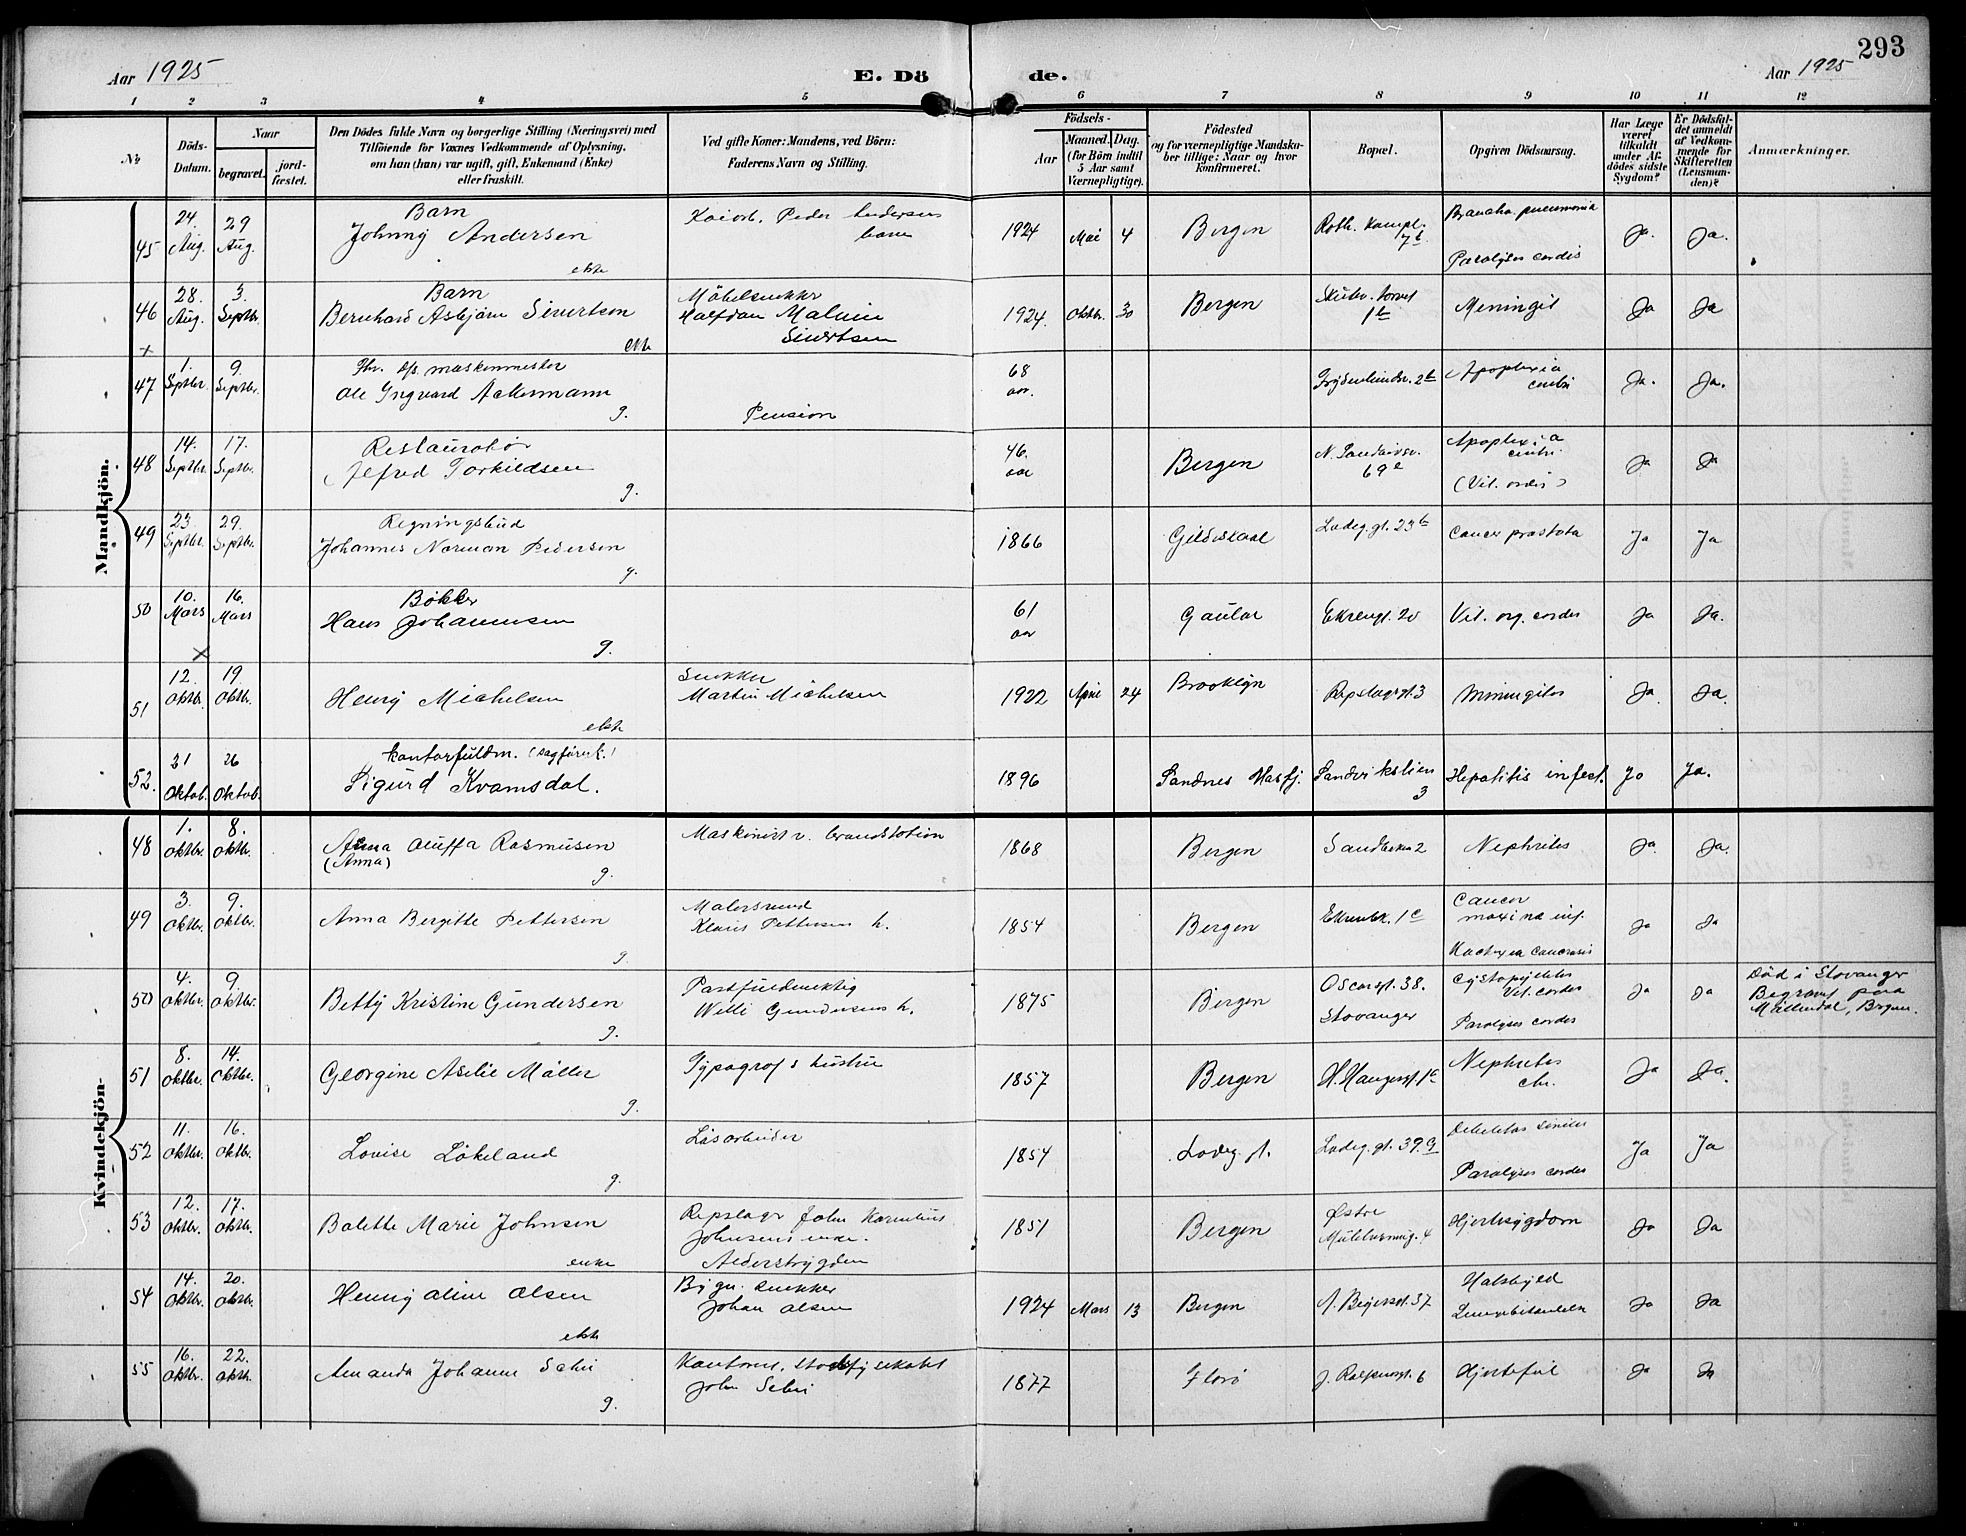 293
Aar 1925 E. Dö de. Aar 1925
1 2 3 4 5 6 7 8 9 10 11 12
No
Döds-Datum.
Naar
begravet.
jord-fæstet.
Den Dödes fulde Navn og borgerlige Stilling (Næringsvei) med
Tilföiende for Voxnes Vedkommende af Oplysning,
om han (hun) var ugift, gift, Enkemand (Enke)
eller fraskilt.
Ved gifte Koner: Mandens, ved Börn:
Faderens Navn og Stilling.
Födsels-
Aar
Maaned. Dag.
(for Börn indtil
5 Aar samt
Værnepligtige).
Födested
og for værnepligtige Mandska-
ber tillige: Naar og hvor
konfirmeret.
Bopæl.
Opgiven Dödsaarsag.
Har Læge
været
tilkaldt
under Af-
dödes sidste
Sygdom?
Er Dödsfal-
det anmeldt
af Vedkom-
mende for
Skifteretten
(Lensman-
den)?
Anmærkninger.
Mandkjön.
45 24. Aug. 29 Aug. Barn
Johnny Andersen
ekte
Peder Andersens
barn
1924 Mai 4 Bergen 7b Broncho pneumonia
Paralyses cordis
Ja. Ja.
46 28. Aug. 3. Septbr. Barn
Bernhard Asbjørn Sivertsen
ekte
Möbelsnekker
Halfdan Malvin
Sivertsen
1924. Oktbr. 30 Bergen 1b Meningit Ja Ja
47 1. Septbr. 9. Septbr. Fhv. maskinmester
Ole Ingvard Ackermann
g.
Pension
68
aar.
2b Apoplexia
cerebri
Ja. Ja.
48 14. Septbr. 17. Septbr. Restauratör
Alfred Torkildsen
g.
46.
aar
Bergen N. Sandviksv.
69e
Apoplexia
cerebri
(Vit. cordis)
Ja Ja
49 23. Septbr. 29. Septbr. Regningsbud
Johannes Norman Pedersen
g.
1866 Gildeskaal Ladeg. gt. 23b Cancer prostata Ja Ja
50 10. Mars 16. Mars Bökker
Hans Johannesen
g.
61
aar
Gaular Ekrengt. 20 Vit. org. cordis Ja Ja.
51 12. Oktbr. 19. Oktbr. Henry Michelsen
ekte
Snekker
Martin Michelsen
1922 April 24 Brooklyn Repslagergt. 3 Miningites Ja Ja.
52. 21 Oktob. 26 Oktob. kontorfuldm. (sagförerk.)
Sigurd Kvamsdal.
1896 Sandnes Masfj. Sandvikslien
3
Hepatitis infect. Ja Ja.
Kvindekjön-
48 1. Oktbr. 8. Oktbr. Oluffa Rasmusen
(Anna)
g.
Maskinist v. brandstation
1868 Bergen Sandbakken 2 Nephrites Ja. Ja.
49 3. Oktbr. 9. Oktbr. Anna Bergitte Pettersen
g.
Malersvend
Klaus Pettersens h.
1854 Bergen 1c Cancer
inf.
Ja Ja
50 4. Oktbr. 9. Oktbr. Betty Kristine Gundersen
g.
Postfuldmektig
Willi Gundersens h.
1875 Bergen Oscarsgt. 38.
Stavanger
Vit. cordes
Paralyses cordes
Ja Ja
Död i Stavanger
Begravet paa
Möllendal, Bergen.
51 8. Oktbr. 14. Oktbr. Georgine Aselie Möller
g.
Typografs hustru
1857 Bergen H. Haugesgt. 1a Nephrites
chr.
Ja Ja.
52 11. Oktbr. 16. Oktbr. Lovise Lökeland
g.
Lösarbeider
1854 Ladeg. gt. Ladeg. gt. 39a Debilitas seniles
Paralyses cordes
Ja Ja
53 12. Oktbr. 17. Oktbr. Balette Marie Johnsen
enke
Repslager John Kornelius
Johnsens enke.
Alderstrygden
1851 Bergen Østre
Mülelvsmug. 4
Hjertesygdom Ja Ja
54 14. Oktbr. 20. Oktbr. Henny Oline Olsen
ekte
Bygn. snekker
Johan Olsen
1924 Mars 13 Bergen 37 Halsbyld
Lungebetændelse
Ja Ja
55 16. Oktbr. 22. Oktbr. Amanda Johanne
g.
John
1877 Florö 6 Hjertefeil Ja Ja